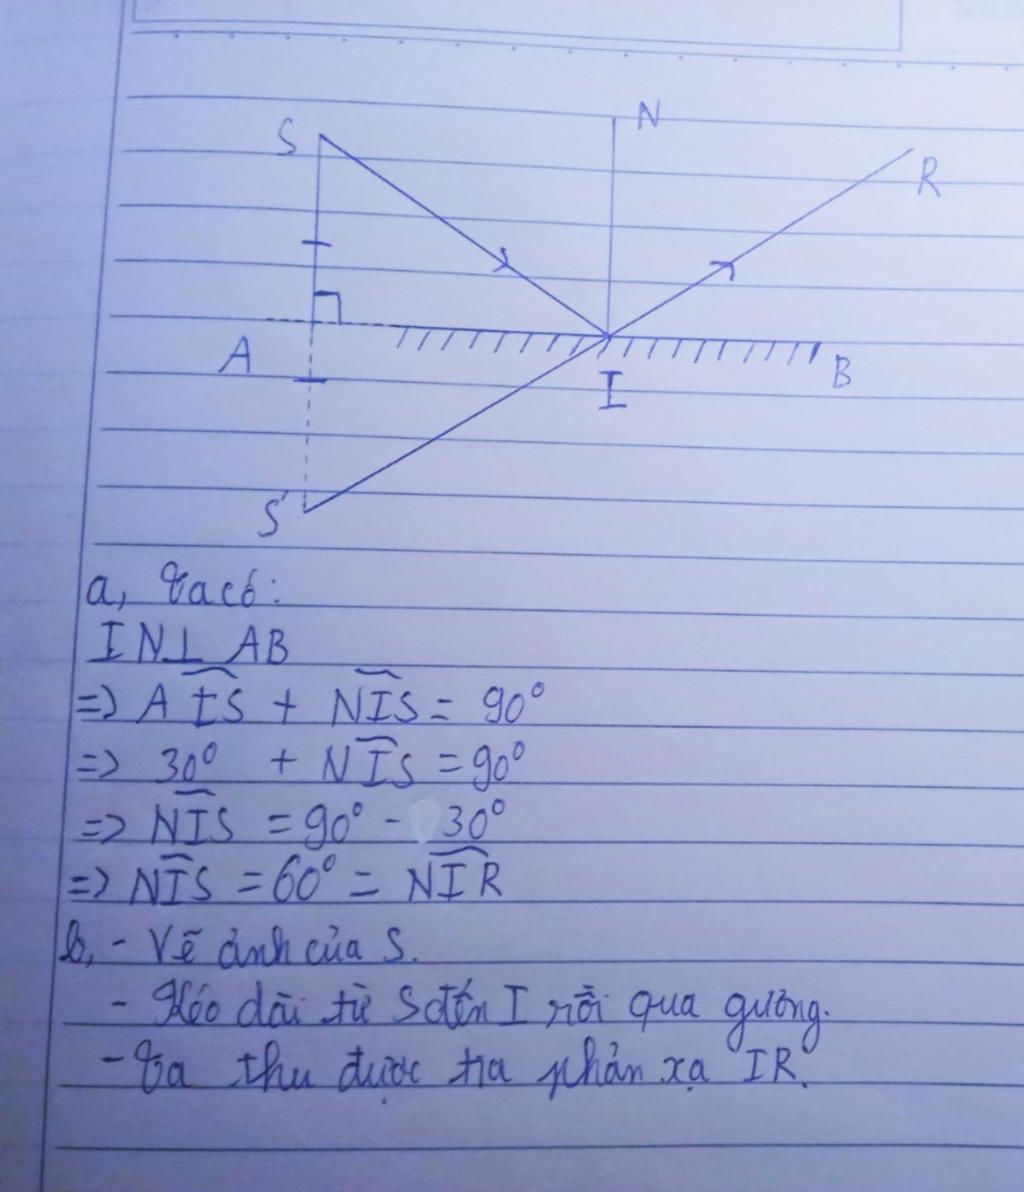 S
N
R
A
I
B
S'
a, Ta có:
IN⊥ AB
=> AIS + NIS = 90°
=> 30° + NIS = 90°
=> NIS = 90° - 30°
=> NIS = 60° = NIR
b, - Vẽ ảnh của S.
- Kéo dài từ S đến I rồi qua gương.
- Ta thu được tia phản xạ IR.